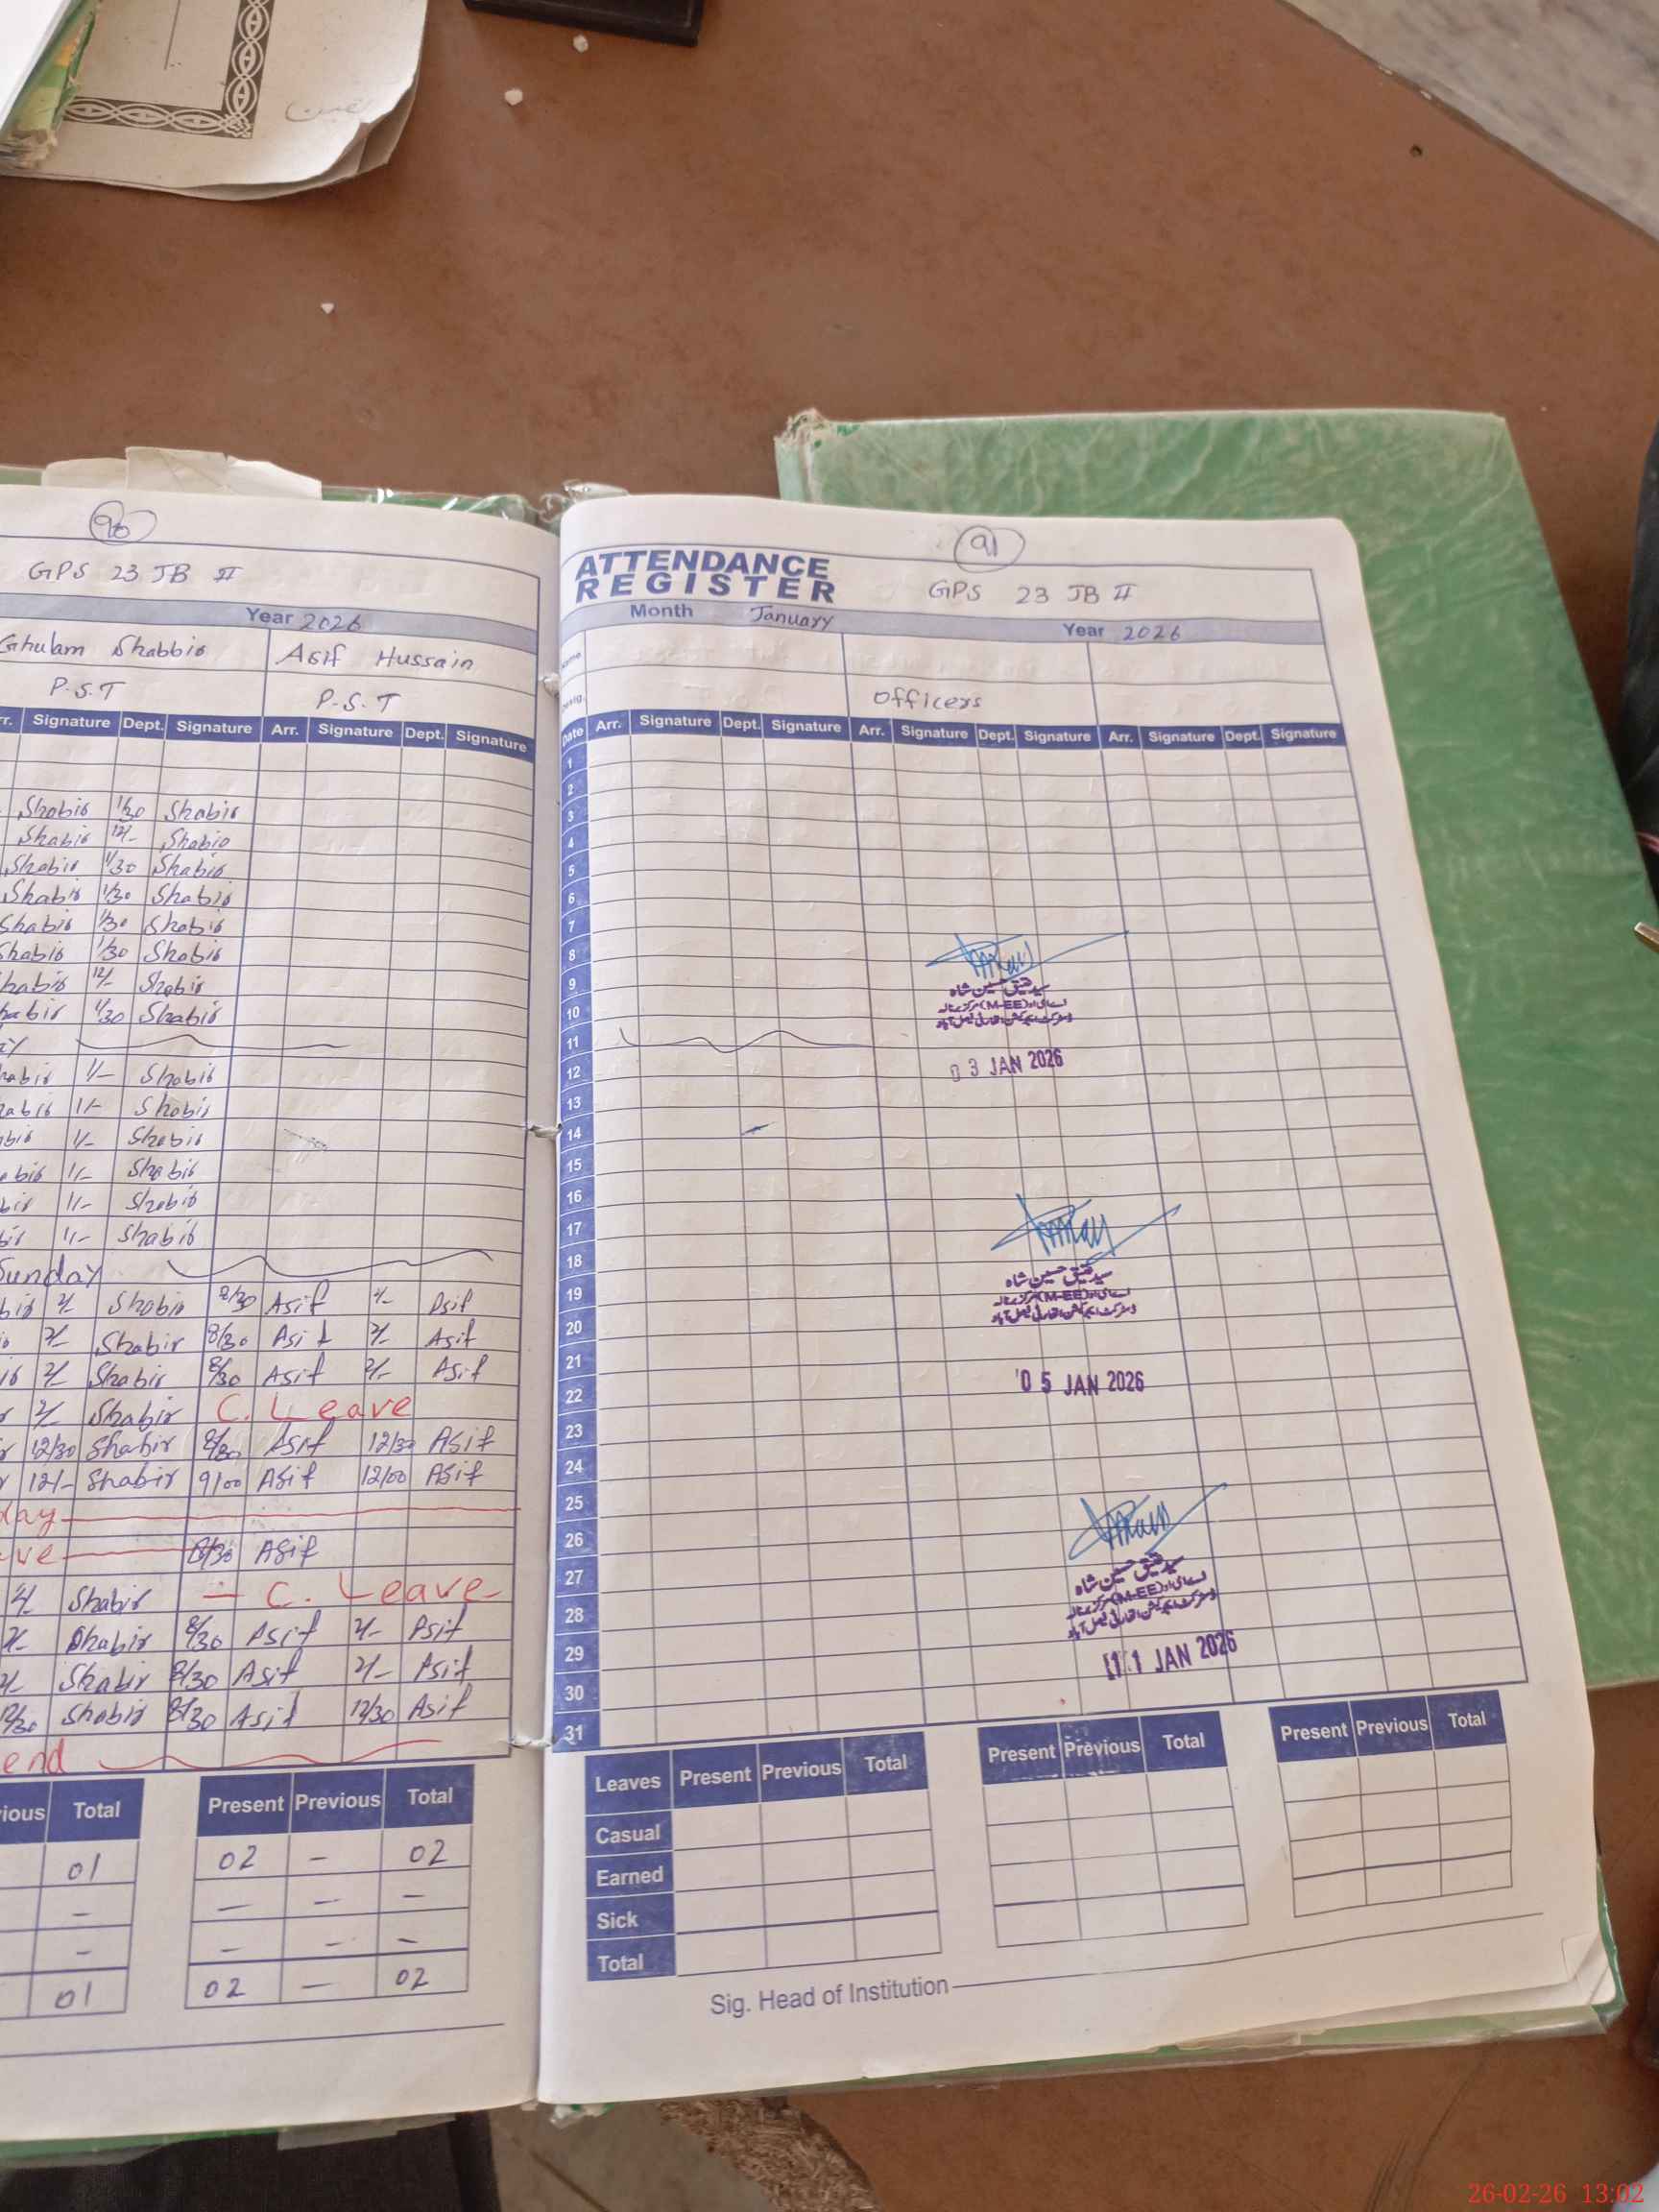 90
GPS 23 JB II
Year 2026
Ghulam Shabbir Asif Hussain
P.S.T P.S.T
Signature Dept. Signature Arr. Signature Dept. Signature
Shabir 1/30 Shabir
Shabir 12/- Shabir
Shabir 1/30 Shabir
Shabir 1/30 Shabir
Shabir 1/30 Shabir
Shabir 1/30 Shabir
Shabir 12/- Shabir
Shabir 1/30 Shabir
1/- Shabir
1/- Shabir
1/- Shabir
1/- Shabir
1/- Shabir
1/- Shabir
Sunday
2/- Shabir 8/30 Asif 2/- Asif
2/- Shabir 8/30 Asif 2/- Asif
2/- Shabir 8/30 Asif 2/- Asif
2/- Shabir C. Leave
12/30 Shabir 8/30 Asif 12/30 Asif
12/- Shabir 9/00 Asif 12/00 Asif
8/30 Asif
2/- Shabir — C. Leave
2/- Shabir 8/30 Asif 2/- Asif
2/- Shabir 8/30 Asif 2/- Asif
12/30 Shabir 8/30 Asif 12/30 Asif
end
Total Present Previous Total
01 02 - 02
- - - -
- - - -
01 02 - 02
91
ATTENDANCE
REGISTER
GPS 23 JB II
Month January Year 2026
Officers
Date Arr. Signature Dept. Signature Arr. Signature Dept. Signature Arr. Signature Dept. Signature
1
2
3
4
5
6
7
8
9
سید فیق حسین شاہ
10
(M-EE)
11
12
03 JAN 2026
13
14
15
16
17
18
19
سید فیق حسین شاہ
(M-EE)
20
21
22
05 JAN 2026
23
24
25
26
27
سید فیق حسین شاہ
28
(M-EE)
29
11 JAN 2026
30
31
Leaves Present Previous Total Present Previous Total Present Previous Total
Casual
Earned
Sick
Total
Sig. Head of Institution
26-02-26 13:02